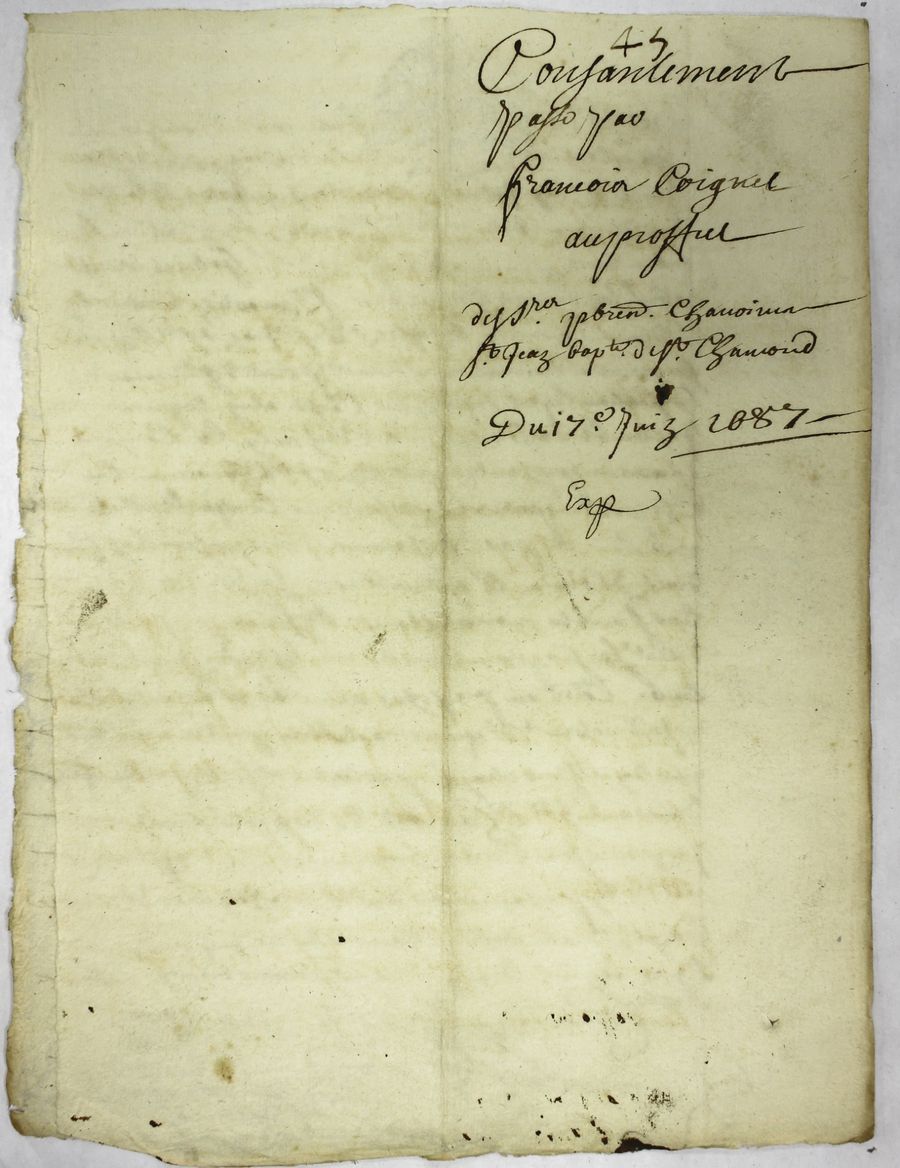 45
Consantement
passé par
francois Coignet
au proffict
des srs prebend. Chanoines
st Jean bapte. de st Chamond
Du 17e Juin 1687
Exp